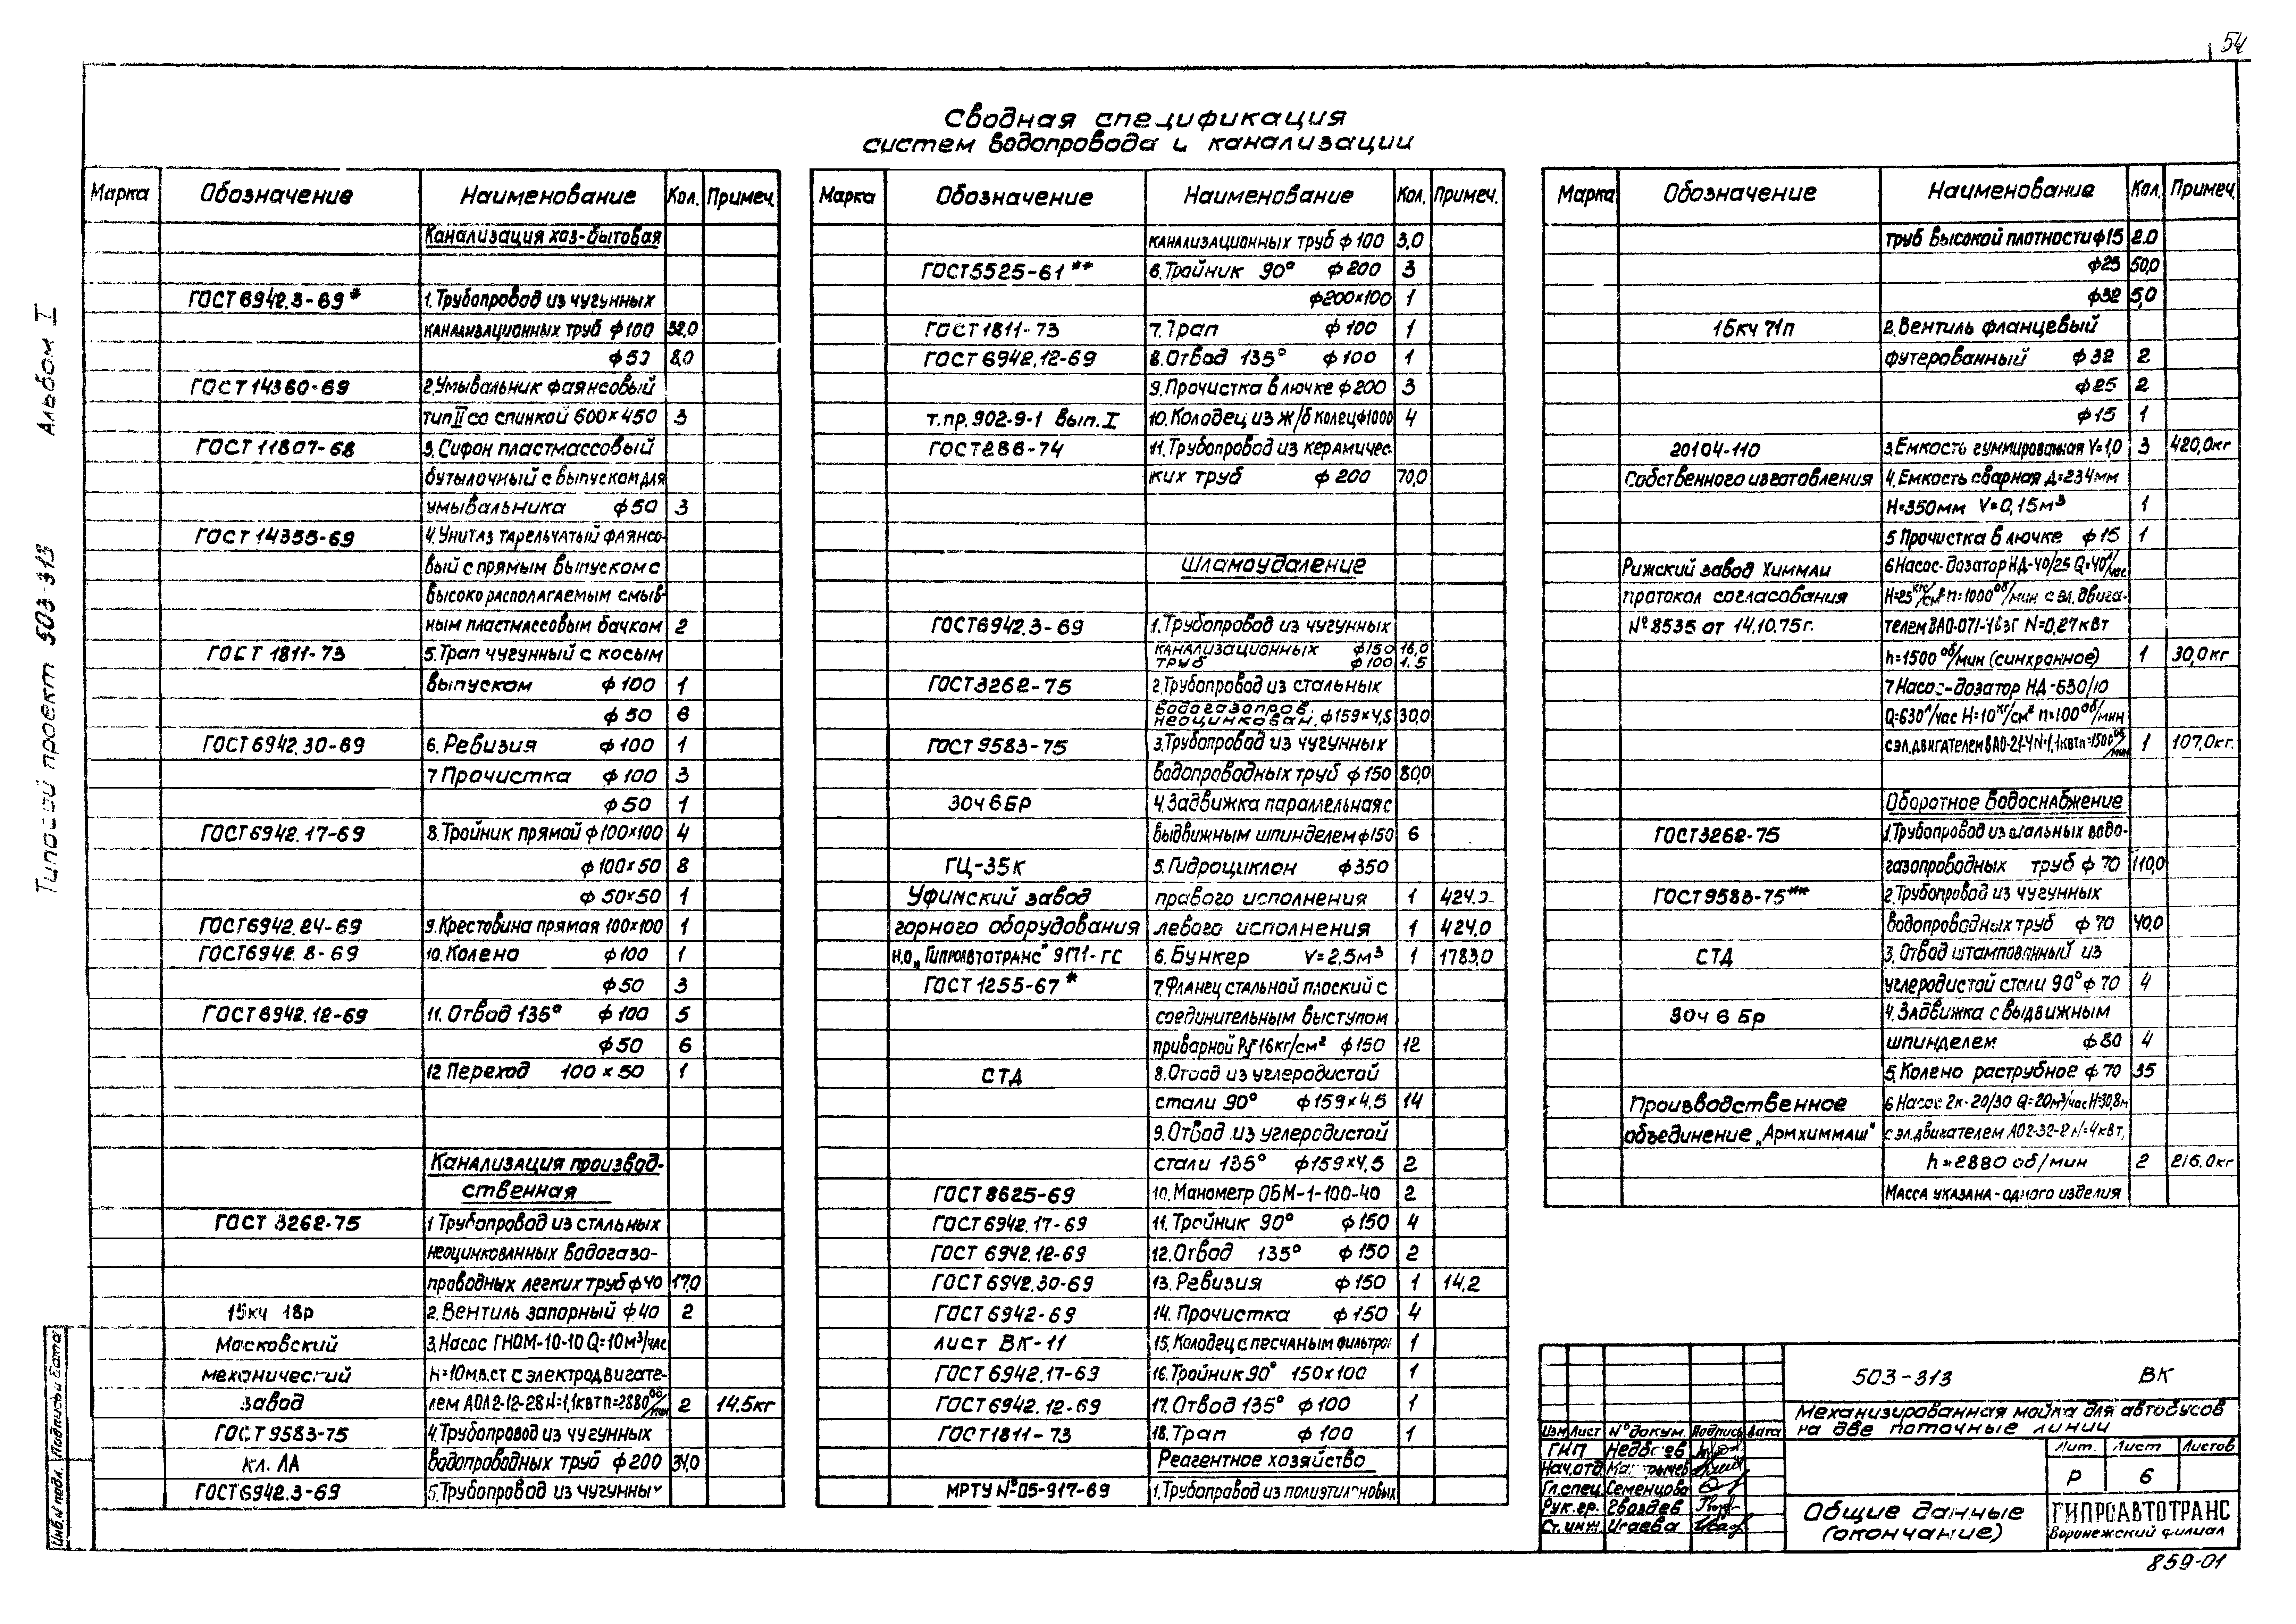 54
Сводная спецификация
систем водопровода и канализации
Альбом I
Типовой проект 503-313
Марка Обозначение Наименование Кол. Примеч.
Канализация хоз-бытовая
ГОСТ 6942.3-69* 1. Трубопровод из чугунных
канализационных труб ф100 32,0
ф50 8,0
ГОСТ 14360-69 2. Умывальник фаянсовый
тип II со спинкой 600×450 3
ГОСТ 11807-68 3. Сифон пластмассовый
бутылочный с выпуском для
умывальника ф50 3
ГОСТ 14355-69 4. Унитаз тарельчатый фаянсо-
вый с прямым выпуском с
высоко располагаемым смыв-
ным пластмассовым бачком 2
ГОСТ 1811-73 5. Трап чугунный с косым
выпуском ф100 1
ф50 6
ГОСТ 6942.30-69 6. Ревизия ф100 1
7 Прочистка ф100 3
ф50 1
ГОСТ 6942.17-69 8. Тройник прямой ф100×100 4
ф100×50 8
ф50×50 1
ГОСТ 6942.24-69 9. Крестовина прямая 100×100 1
ГОСТ 6942.8-69 10. Колено ф100 1
ф50 3
ГОСТ 6942.12-69 11. Отвод 135° ф100 5
ф50 6
12 Переход 100×50 1
Канализация производ-
ственная
ГОСТ 3262-75 1 Трубопровод из стальных
неоцинкованных водогазо-
проводных легких труб ф40 17,0
15кч 18р 2. Вентиль запорный ф40 2
Московский 3. Насос ГНОМ-10-10 Q=10м³/час
механический H=10м.в.ст. с электродвигате-
завод лем АОЛ2-12-2 N=1,1квт n=2880 об/мин 2 14.5кг
ГОСТ 9583-75 4. Трубопровод из чугунных
кл. ЛА водопроводных труб ф200 34,0
ГОСТ 6942.3-69 5. Трубопровод из чугунных
Марка Обозначение Наименование Кол. Примеч.
канализационных труб ф100 3,0
ГОСТ 5525-61** 6. Тройник 90° ф200 3
ф200×100 1
ГОСТ 1811-73 7. Трап ф100 1
ГОСТ 6942.12-69 8. Отвод 135° ф100 1
9. Прочистка в лючке ф200 3
т.пр. 902-9-1 вып. I 10. Колодец из ж/б колец ф1000 4
ГОСТ 286-74 11. Трубопровод из керамичес-
ких труб ф200 70,0
Шламоудаление
ГОСТ 6942.3-69 1. Трубопровод из чугунных
канализационных ф150 16,0
труб ф100 1.5
ГОСТ 3262-75 2. Трубопровод из стальных
водогазопров.
неоцинкован. ф159×4,5 30,0
ГОСТ 9583-75 3. Трубопровод из чугунных
водопроводных труб ф150 80,0
30ч 6 БР 4. Задвижка параллельная с
выдвижным шпинделем ф150 6
ГЦ-35К 5. Гидроциклон ф350
Уфимский завод правого исполнения 1 424.0
горного оборудования левого исполнения 1 424.0
Н.О. „Гипроавтотранс" 9П1-ГС 6. Бункер V=2.5м³ 1 1783,0
ГОСТ 1255-67* 7. Фланец стальной плоский с
соединительным выступом
приварной Ру-16кг/см² ф150 12
СТД 8. Отвод из углеродистой
стали 90° ф159×4.5 14
9. Отвод из углеродистой
стали 135° ф159×4,5 2
ГОСТ 8625-69 10. Манометр ОБМ-1-100-40 2
ГОСТ 6942.17-69 11. Тройник 90° ф150 4
ГОСТ 6942.12-69 12. Отвод 135° ф150 2
ГОСТ 6942.30-69 13. Ревизия ф150 1 14.2
ГОСТ 6942-69 14. Прочистка ф150 4
лист ВК-11 15. Колодец с песчаным фильтром 1
ГОСТ 6942.17-69 16. Тройник 90° 150×100 1
ГОСТ 6942.12-69 17. Отвод 135° ф100 1
ГОСТ 1811-73 18. Трап ф100 1
Реагентное хозяйство
МРТУ №05-917-69 1. Трубопровод из полиэтиленовых
Марка Обозначение Наименование Кол. Примеч.
труб высокой плотности ф15 2.0
ф25 50,0
ф32 5,0
15кч 71п 2. Вентиль фланцевый
футерованный ф32 2
ф25 2
ф15 1
20104-110 3. Емкость гуммированная V=1,0 3 420,0кг
Собственного изготовления 4. Емкость сварная Д=234мм
H=350мм V=0,15м³ 1
5 Прочистка в лючке ф15 1
Рижский завод Химмаш 6 Насос-дозатор НД-40/25 Q=40л/час
протокол согласования H=25кгс/см² n=1000об/мин с эл. двига-
№8535 от 14.10.75г. телем ВАО-071-4В3Г N=0,27квт
h=1500 об/мин (синхронное) 1 30,0кг
7 Насос-дозатор НД-630/10
Q=630л/час H=10кг/см² n=100об/мин
с эл. двигателем ВАО-21-4 N=1,1квт n=1500об/мин 1 107.0кг.
Оборотное водоснабжение
ГОСТ 3262-75 1. Трубопровод из стальных водо-
газопроводных труб ф70 110,0
ГОСТ 9583-75** 2. Трубопровод из чугунных
водопроводных труб ф70 40,0
СТД 3. Отвод штампованный из
углеродистой стали 90° ф70 4
30ч 6 Бр 4. Задвижка с выдвижным
шпинделем ф80 4
5. Колено раструбное ф70 35
Производственное 6 Насос 2к-20/30 Q=20м³/час H=30,8м
объединение „Армхиммаш" с эл. двигателем АО2-32-2 N=4квт,
h=2880 об/мин 2 216.0кг
Масса указана - одного изделия
503-313 ВК
Механизированная мойка для автобусов
на две поточные линии
Изм Лист №докум. Подпись Дата
Лит. Лист Листов
Р 6
ГИП
Нач.отд.
Гл.спец. Семенцова
Рук.гр. Гвоздев
Ст.инж. Игаева
Общие данные
(окончание)
ГИПРОАВТОТРАНС
Воронежский филиал
859-01
Инв.№ подл. Подпись и дата